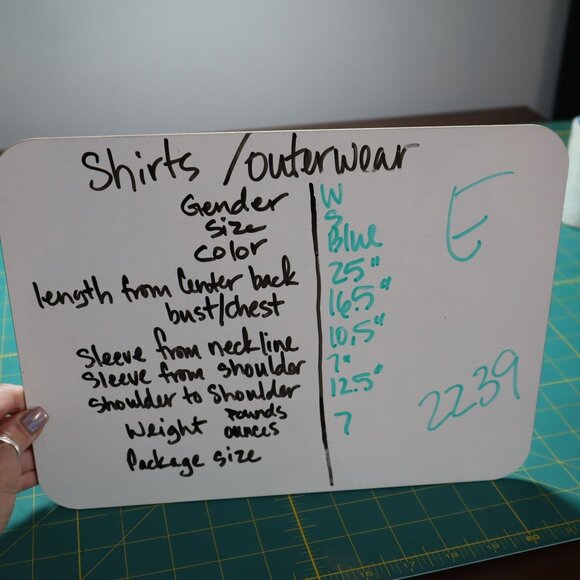 Shirts / outerwear
Gender W
Size S
Color Blue
length from Center back 25"
bust/chest 16.5"
Sleeve from neckline 10.5"
Sleeve from shoulder 7"
Shoulder to Shoulder 12.5"
Weight Pounds
ounces 7
Package size
E
2239